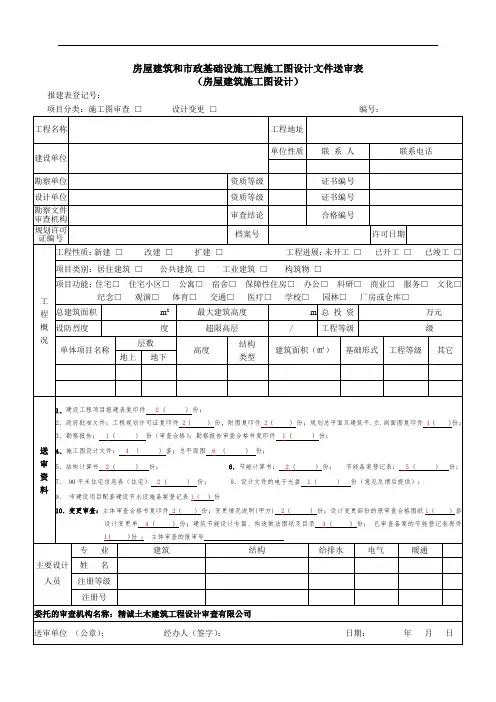 房屋建筑和市政基础设施工程施工图设计文件送审表
（房屋建筑施工图设计）
报建表登记号：
项目分类：施工图审查 □ 设计变更 □ 编号：
工程名称 工程地址
建设单位 单位性质 联 系 人 联系电话
勘察单位 资质等级 证书编号
设计单位 资质等级 证书编号
勘察文件审查机构 审查结论 合格编号
规划许可证编号 档案号 许可日期
工程概况
工程性质：新建 □ 改建 □ 扩建 □ 工程进展：未开工 □ 已开工 □ 已竣工 □
项目类别：居住建筑 □ 公共建筑 □ 工业建筑 □ 构筑物 □
项目功能：住宅□ 住宅小区□ 公寓□ 宿舍□ 保障性住房□ 办公□ 科研□ 商业□ 服务□ 文化□
纪念□ 观演□ 体育□ 交通□ 医疗□ 学校□ 园林□ 厂房或仓库□
总建筑面积 m² 最大建筑高度 m 总 投 资 万元
设防烈度 度 超限高层 / 工程等级 级
单体项目名称 层数 高度 结构类型 建筑面积（㎡） 基础形式 工程等级 其它
地上 地下
送审资料
1、建设工程项目报建表复印件 2（ ）份；
2．政府批准文件：工程规划许可证复印件 2（ ）份，附图复印件 2（ ）份；规划总平面及建筑平.立.剖面图复印件 1（ ）份；
3．勘察报告： 1（ ） 份（审查合格）；勘察报告审查合格书复印件 1（ ）份；
4、施工图设计文件： 4 （ ）套；总平面图 6 （ ） 份；
5．结构计算书 2（ ） 份； 6．节能计算书： 2（ ） 份； 节能备案登记表： 5（ ） 份；
7． 90平米住宅信息表（住宅） 2（ ） 份； 8．设计文件的电子光盘 1（ ） 份（意见反馈后提供）；
9． 市建设项目配套建设节水设施备案登记表 1（ ）份
10．变更审查：主体审查合格书复印件 2（ ）份；变更情况说明(甲方) 2（ ）份；设计变更部份的原审查合格图纸 1（ ）套
设计变更单 4（ ）份；建筑节能设计专篇、构造做法图纸及目录 4（ ）份； 已审查备案的节能登记表原件
1（ ）份； 主体审查的报审号
主要设计人员 专 业 建筑 结构 给排水 电气 暖通
姓 名
注册等级
注册号
委托的审查机构名称：精诚土木建筑工程设计审查有限公司
送审单位 （公章）： 经办人（签字）： 日期： 年 月 日